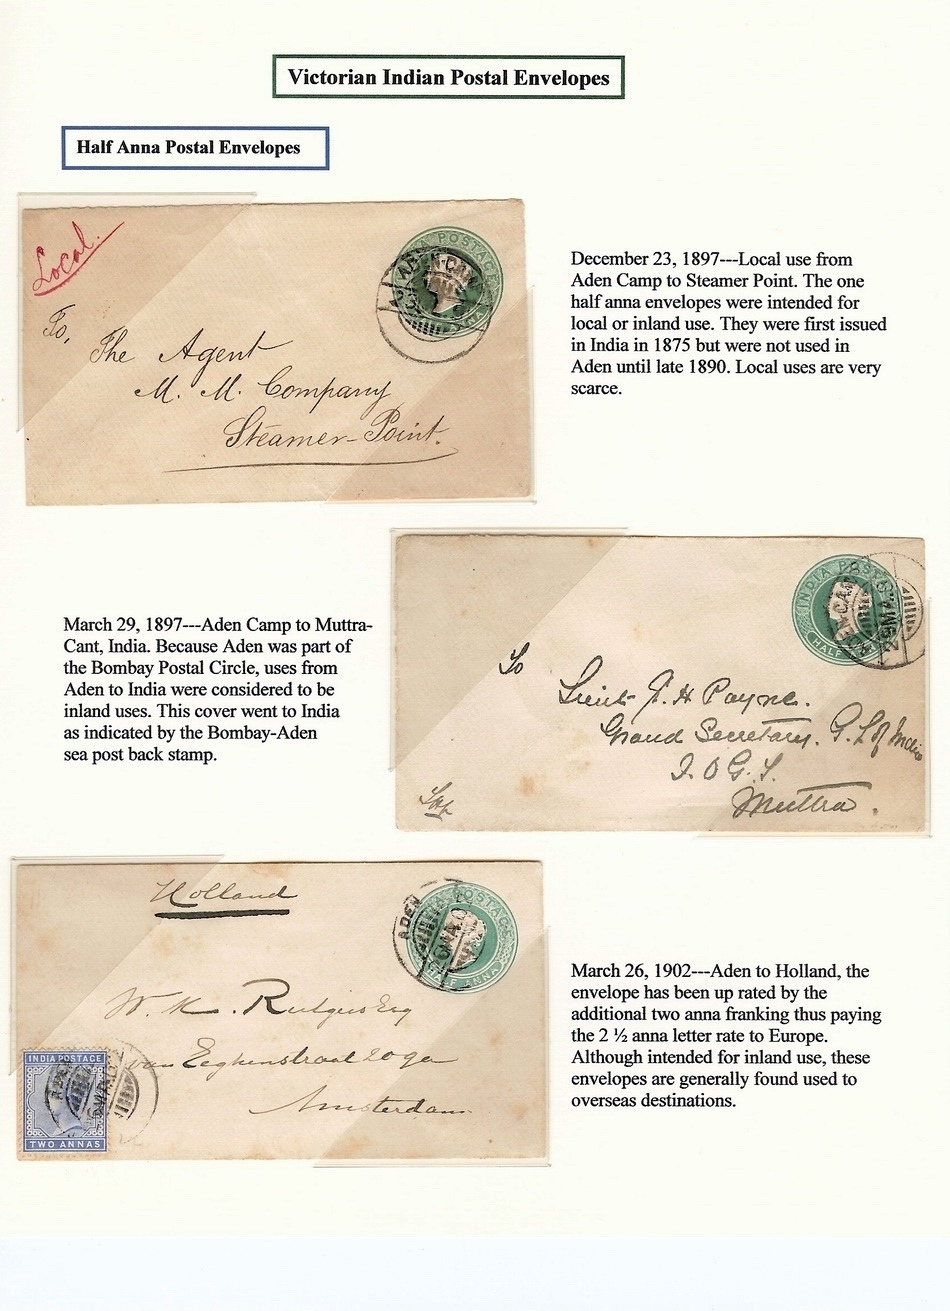 Victorian Indian Postal Envelopes
Half Anna Postal Envelopes
Local.
To,
The Agent
M. M. Company
Steamer-Point.
INDIA POSTAGE
ADEN-CAMP
December 23, 1897---Local use from
Aden Camp to Steamer Point. The one
half anna envelopes were intended for
local or inland use. They were first issued
in India in 1875 but were not used in
Aden until late 1890. Local uses are very
scarce.
March 29, 1897---Aden Camp to Muttra-
Cant, India. Because Aden was part of
the Bombay Postal Circle, uses from
Aden to India were considered to be
inland uses. This cover went to India
as indicated by the Bombay-Aden
sea post back stamp.
INDIA POSTAGE
HALF
29 MA
To
Lieut J. H Payne.
Grand Secretary. G. L of India
I. O G. T.
Muttra.
Holland
ADEN
HALF ANNA
W. M. Rutgers Esq
van Eeghenstraat
Amsterdam
INDIA POSTAGE
ADEN
TWO ANNAS
March 26, 1902---Aden to Holland, the
envelope has been up rated by the
additional two anna franking thus paying
the 2 ½ anna letter rate to Europe.
Although intended for inland use, these
envelopes are generally found used to
overseas destinations.